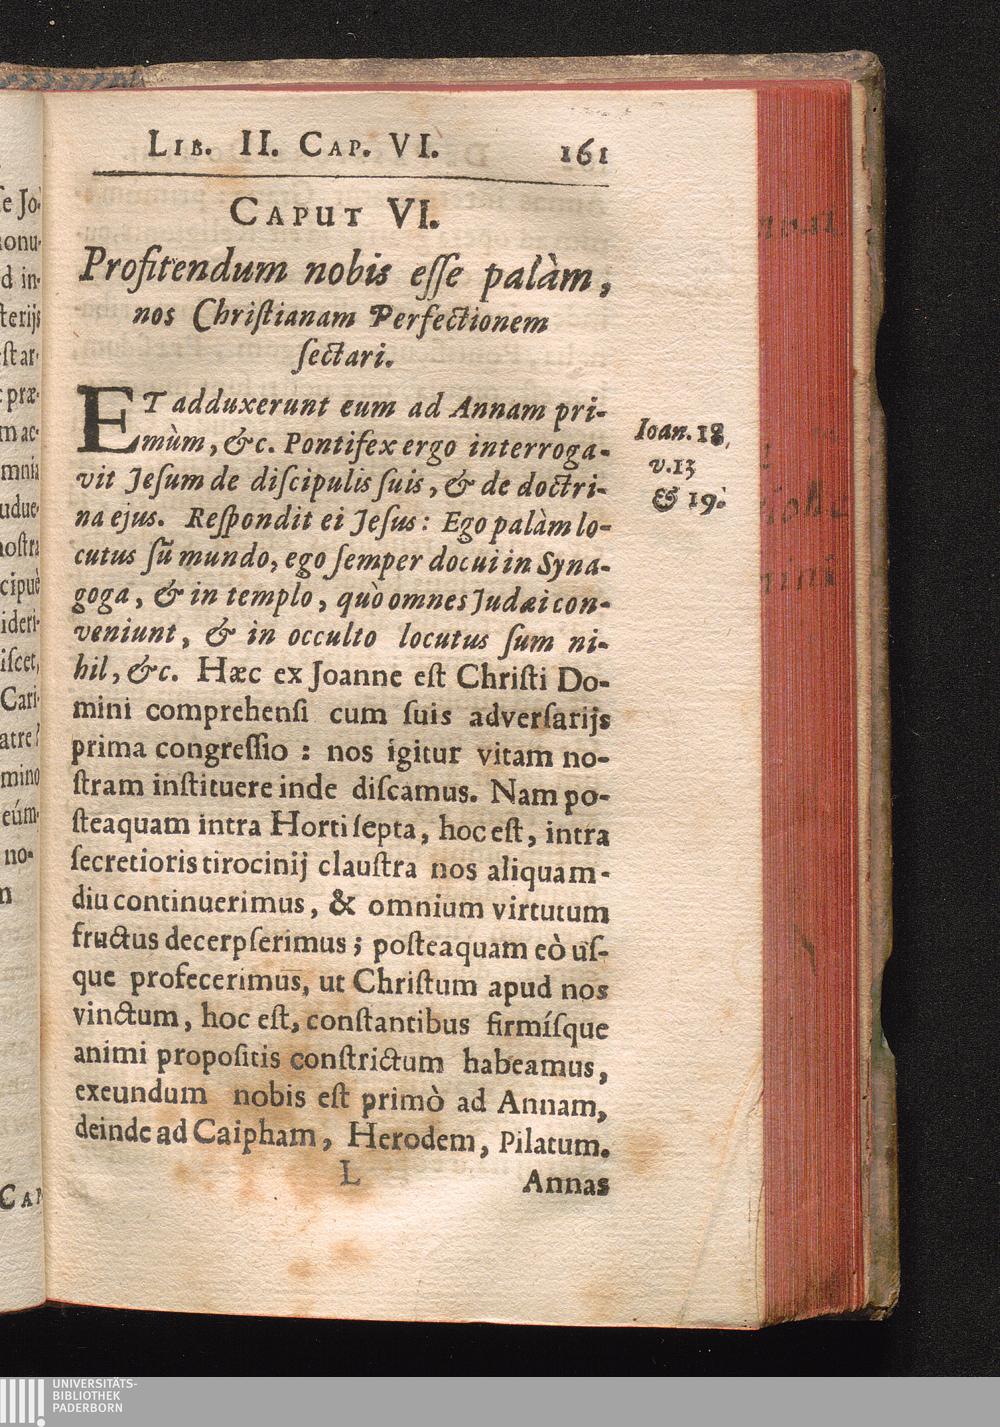 LIB. II. CAP. VI. 161
CAPUT VI.
Profitendum nobis esse palàm,
nos Christianam Perfectionem
sectari.
ET adduxerunt eum ad Annam pri-
mùm, &c. Pontifex ergo interroga-
vit Jesum de discipulis suis, & de doctri-
na ejus. Respondit ei Jesus: Ego palàm lo-
cutus sũ mundo, ego semper docui in Syna-
goga, & in templo, quò omnes Judæi con-
veniunt, & in occulto locutus sum ni-
hil, &c. Hæc ex Joanne est Christi Do-
mini comprehensi cum suis adversarijs
prima congressio : nos igitur vitam no-
stram instituere inde discamus. Nam po-
steaquam intra Horti septa, hoc est, intra
secretioris tirocinij claustra nos aliquam-
diu continuerimus, & omnium virtutum
fructus decerpserimus; posteaquam eò us-
que profecerimus, ut Christum apud nos
vinctum, hoc est, constantibus firmísque
animi propositis constrictum habeamus,
exeundum nobis est primò ad Annam,
deinde ad Caipham, Herodem, Pilatum.
L Annas
Ioan. 18,
v.13
& 19.
se Jo-
d in-
terijs
st ar-
præ-
m ac-
mnia
udue-
nostra
cipuè
ideri-
iscet,
Cari-
atre?
mino
eúm-
no-
CAP
UNIVERSITÄTS-
BIBLIOTHEK
PADERBORN